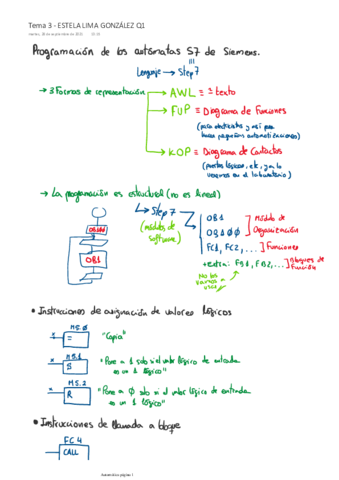 Tema 3 - ESTELA LIMA GONZÁLEZ Q1
Programación de los autómatas S7 de Siemens.
Lenguaje → Step 7
→ 3 Formas de representación
AWL ≡ texto
FUP ≡ Diagrama de Funciones
KOP ≡ Diagrama de Contactos
→ La programación es estructural (no es lineal)
↳ Step 7
(módulos de
software)
OB1
OB100
Módulo de
Organización
FC1, FC2, ...] Funciones
+extra: FB1, FB2, ...] Bloques de
función
No los
vamos a
usar
OB100
OB1
• Instrucciones de asignación de valores lógicos
M5.0
x
=
"Copia"
M5.1
x
S
"Pone a 1 solo si el valor lógico de entrada
es un 1 lógico"
M5.2
x
R
"Pone a 0 solo si el valor lógico de entrada
es un 1 lógico"
• Instrucciones de llamada a bloque
FC 4
CALL
Automática página 1